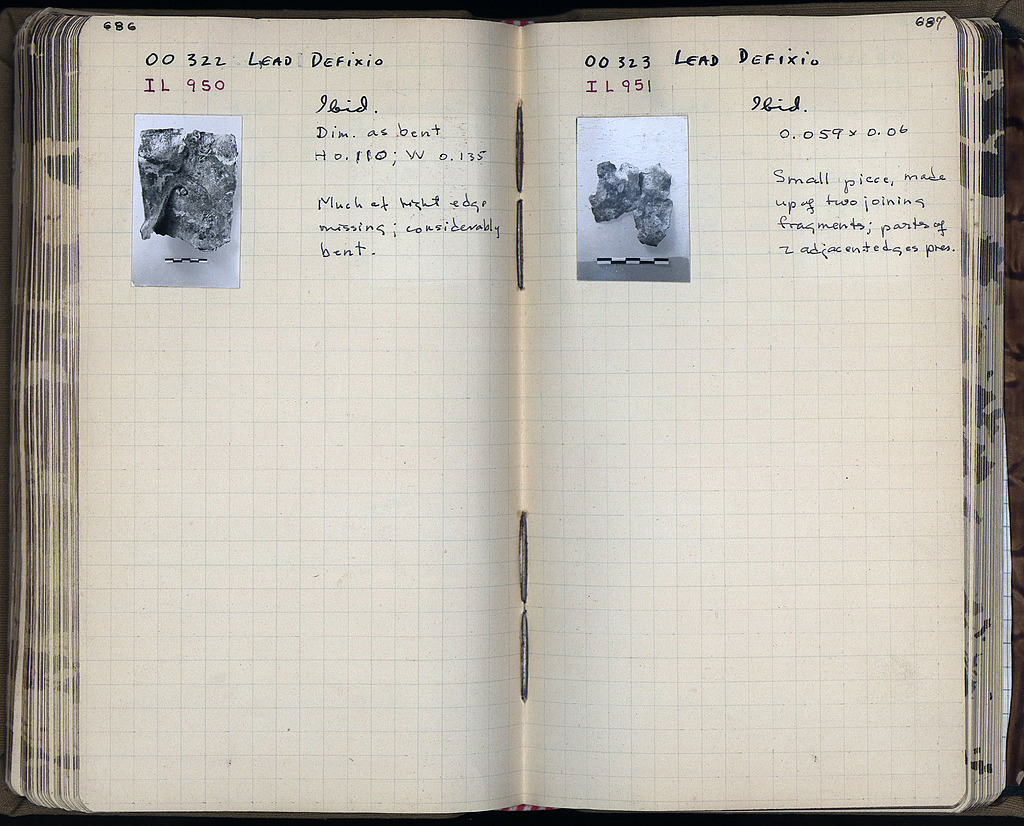 686
OO 322 LEAD DEFIXIO
IL 950
Ibid.
Dim. as bent
H 0.110; W 0.135
Much of right edge
missing; considerably
bent.
687
OO 323 LEAD DEFIXIO
IL 951
Ibid.
0.059 x 0.06
Small piece, made
up of two joining
fragments; parts of
2 adjacent edges pres.